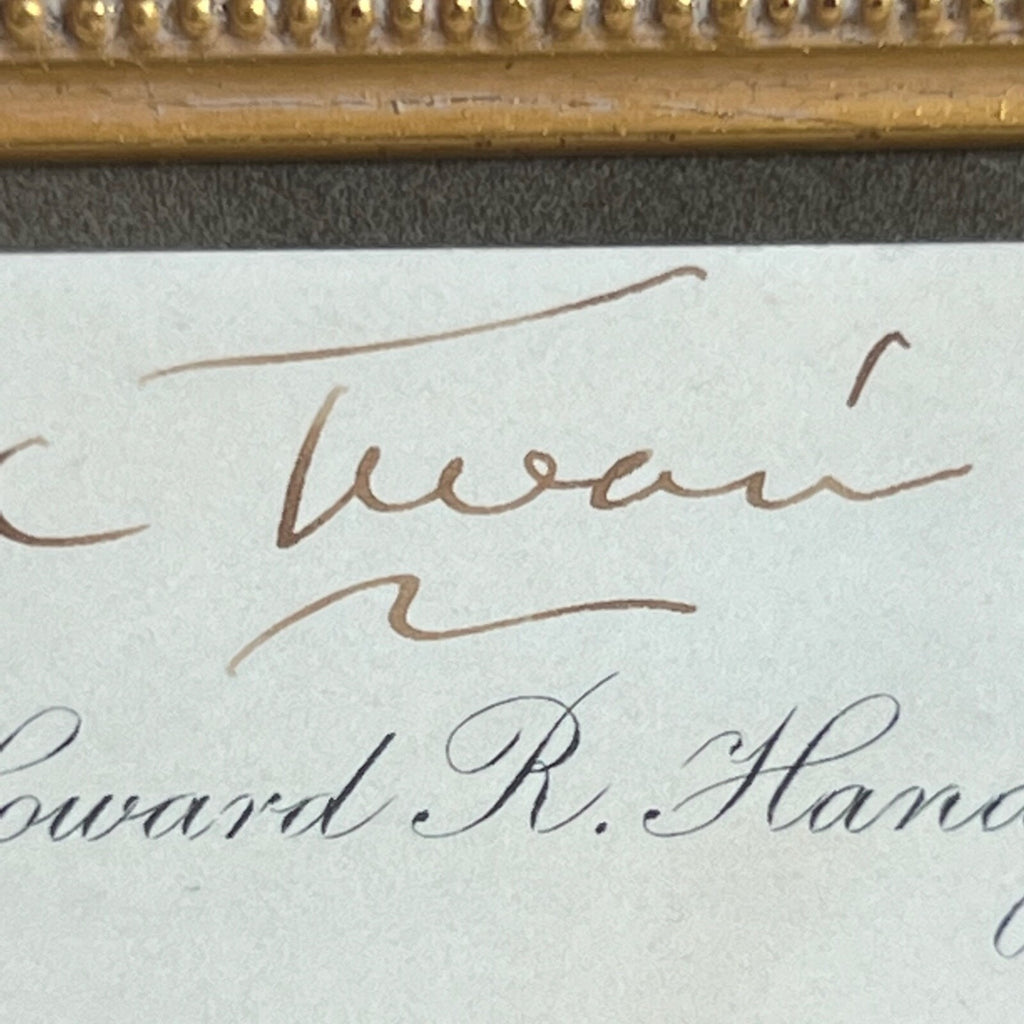 Twain
oward R. Hand